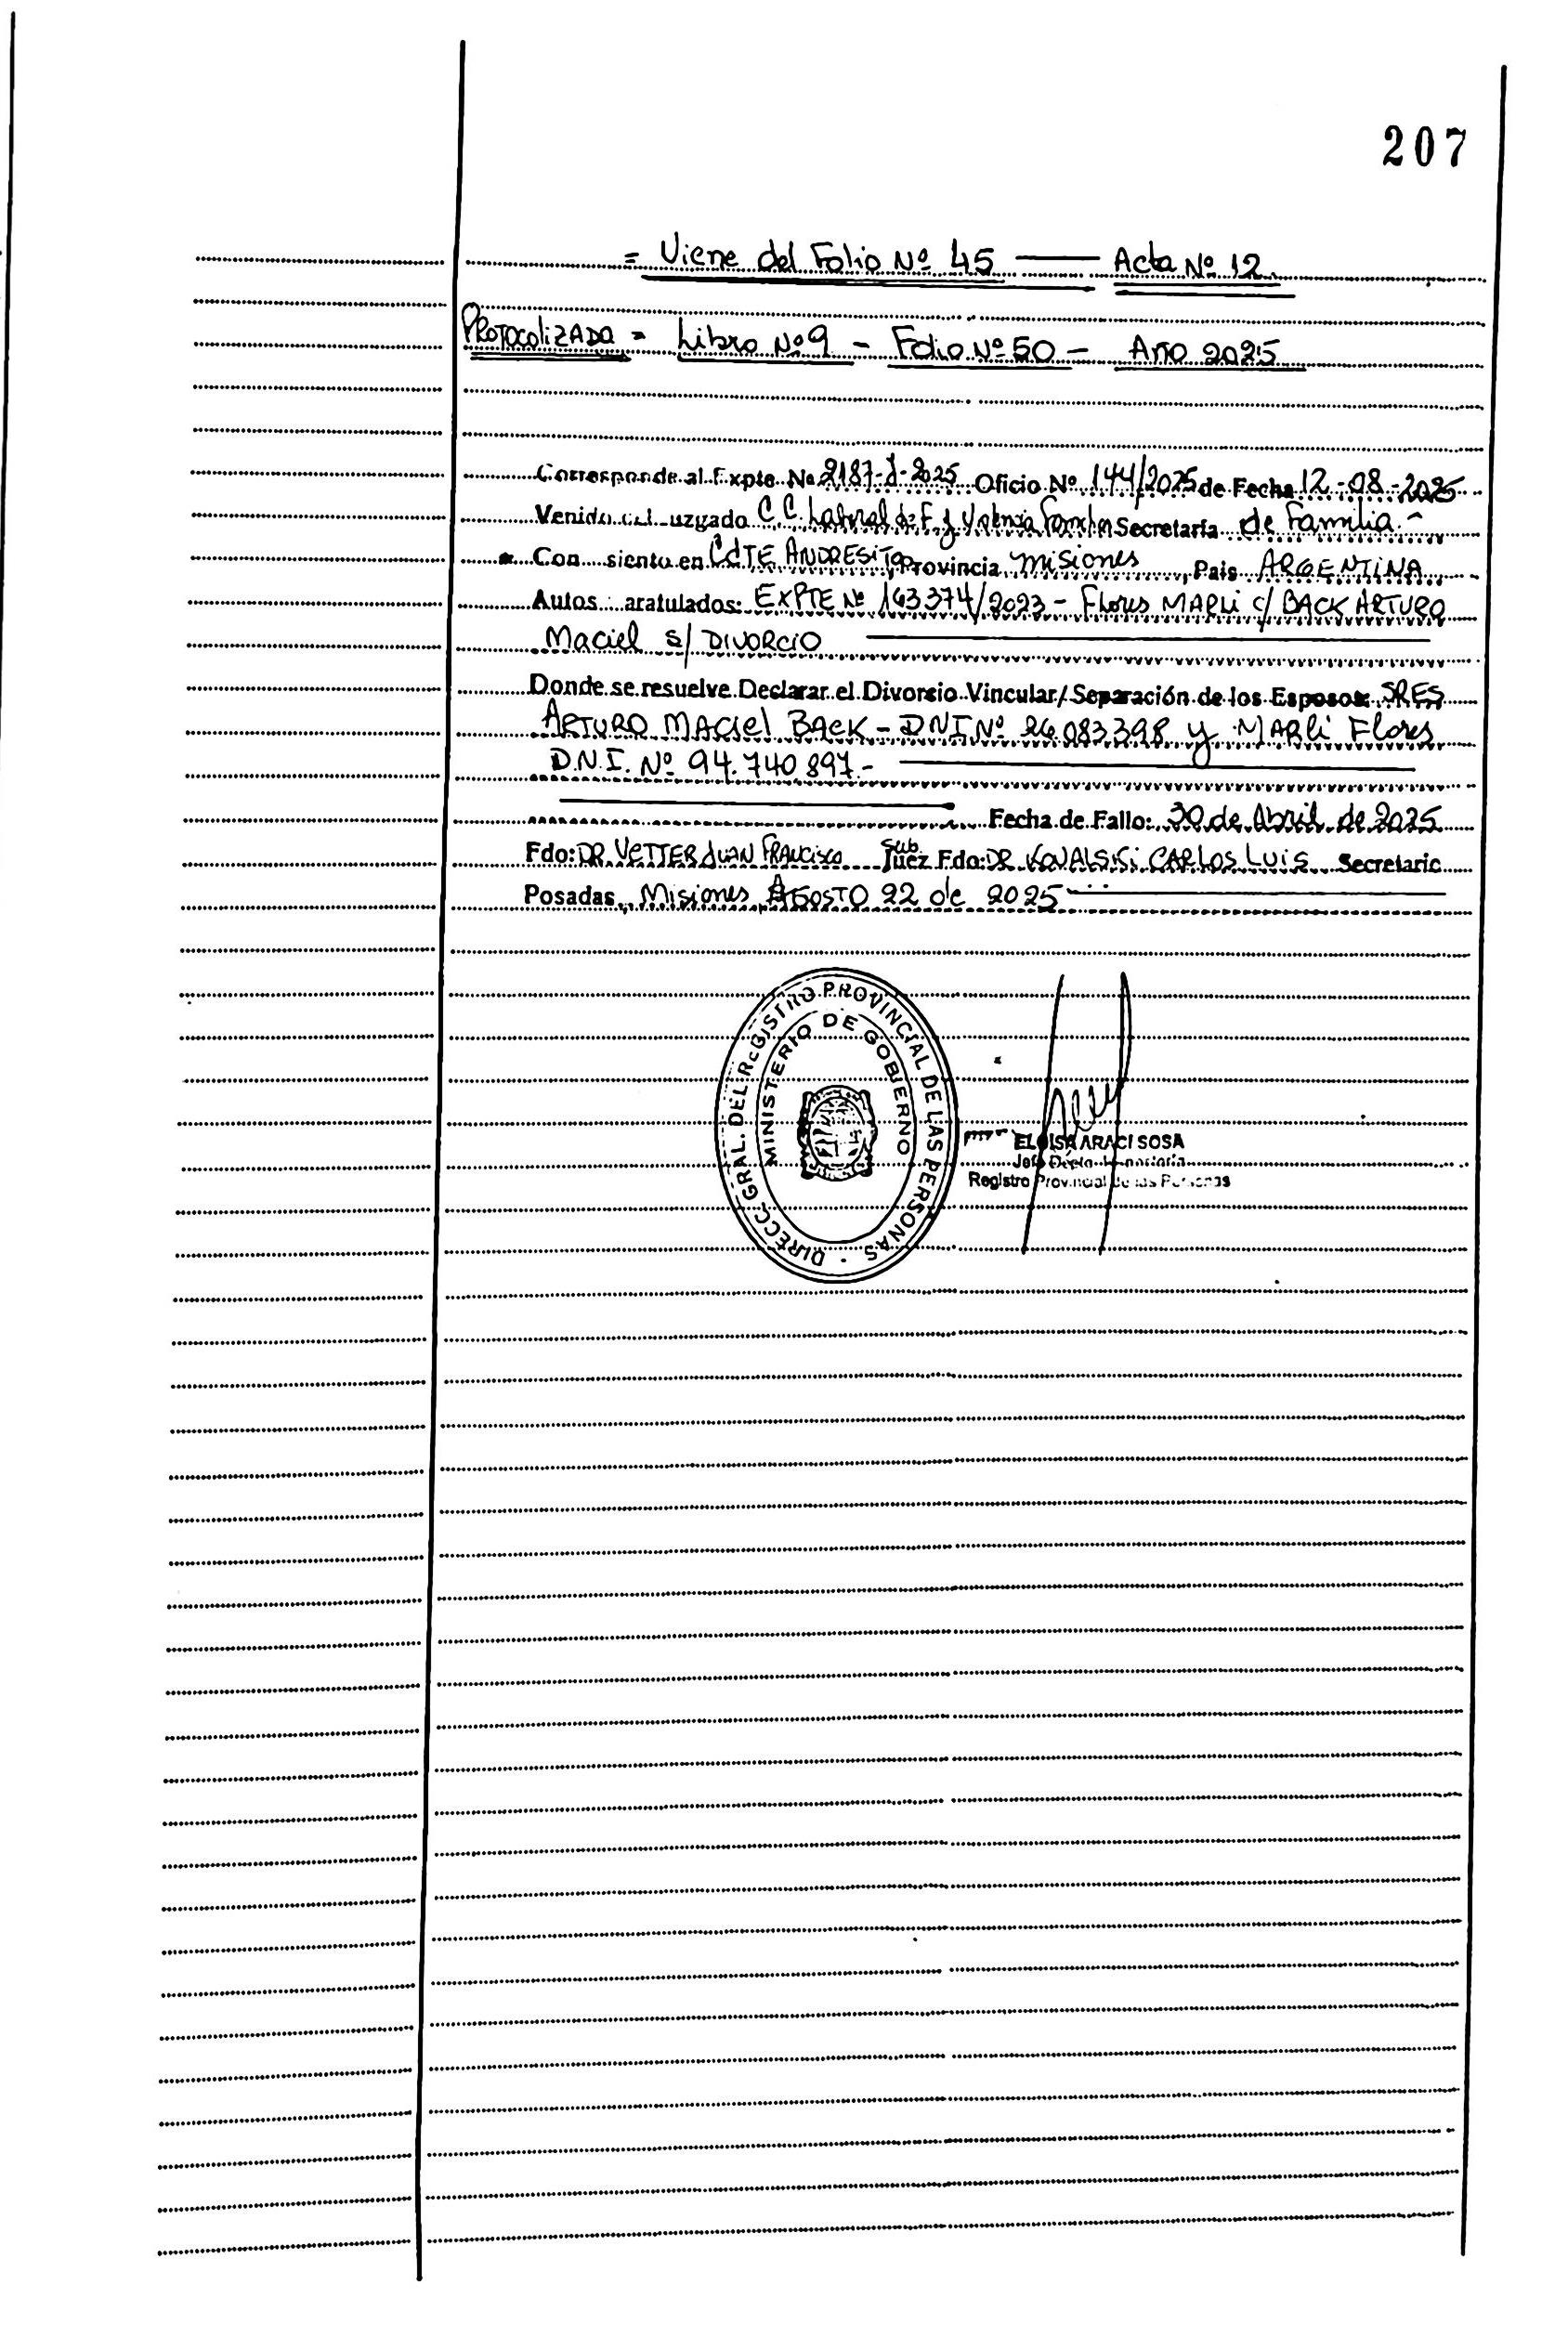 207
= Viene del Folio Nº 45 — Acta Nº 12
PROTOCOLIZADA = Libro Nº 9 - Folio Nº 50 - Año 2025
Corresponde al Expte Nº 2187-J-2025 Oficio Nº 144/2025 de Fecha 12-08-2025
Venido del uzgado C.C. Laboral de F. y Violencia Familiar Secretaría de Familia.-
Con siento en CdTE ANDRESITO, Provincia Misiones, Pais ARGENTINA
Autos aratulados: EXPTE Nº 163374/2023 - Flores MARLi c/ BACK ARTURO
Maciel s/ DIVORCIO
Donde se resuelve Declarar el Divorsio Vincular/Separación de los Esposos: SRES
ARTURO MACIEL BACK - DNI Nº 26.083.398 y MARLi Flores
D.N.I. Nº 94.740.897.-
Fecha de Fallo: 30 de Abril de 2025
Fdo: DR. VETTER JUAN FRANCISCO Sub. Juez Fdo: DR CARLOS LUIS Secretaric
Posadas, Misiones, AGOSTO 22 de 2025
DIRECC. GRAL. DEL REGISTRO PROVINCIAL DE LAS PERSONAS
MINISTERIO DE GOBIERNO
ELOISA ARACI SOSA
Jefe Dpto.
Registro Provincial de las Personas